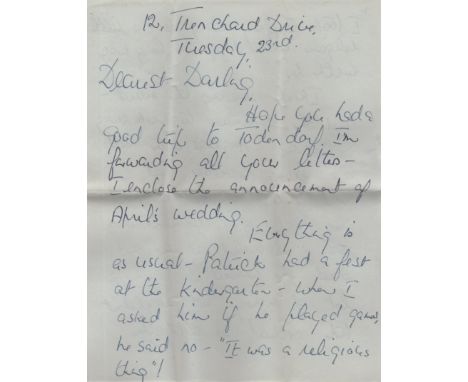 12, Trenchard Drive,
Tuesday, 23rd.
Dearest Darling,
Hope you had a
good trip to Todendorf. I'm
forwarding all your letters –
I enclose the announcement of
April's wedding.
Everything is
as usual – Patrick had a fest
at the Kindergarten – when I
asked him if he played games,
he said no – "It was a religious
thing"!